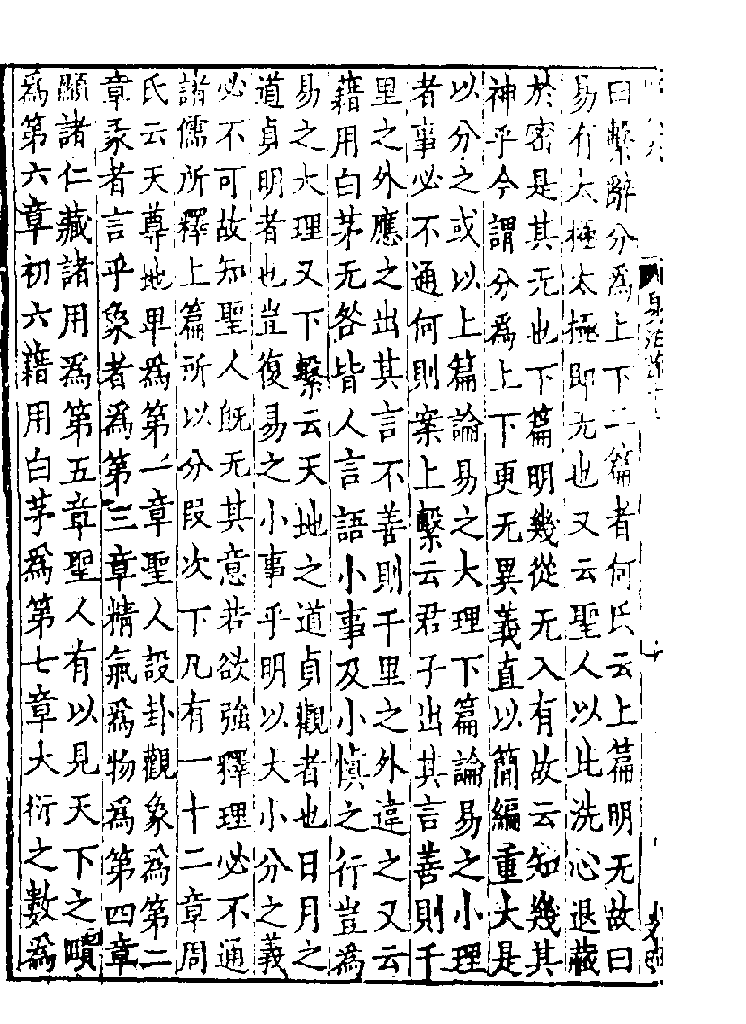 曰繫辭分爲上下二篇者何氏云上篇明无故曰
易有太極太極即无也又云聖人以此洗心退藏
於密是其无也下篇明幾從无入有故云知幾其
神乎今謂分爲上下更无異義直以簡編重大是
以分之或以上篇論易之大理下篇論易之小理
者事必不通何則案上繫云君子出其言善則千
里之外應之出其言不善則千里之外違之又云
藉用白茅无咎皆人言語小事及小愼之行豈爲
易之大理又下繫云天地之道貞觀者也日月之
道貞明者也豈復易之小事乎明以大小分之義
必不可故知聖人旣无其意若欲強釋理必不通
諸儒所釋上篇所以分段次下凡有一十二章周
氏云天尊地卑爲第一章聖人設卦觀象爲第二
章彖者言乎象者爲第三章精氣爲物爲第四章
顯諸仁藏諸用爲第五章聖人有以見天下之賾
爲第六章初六藉用白茅爲第七章大衍之數爲